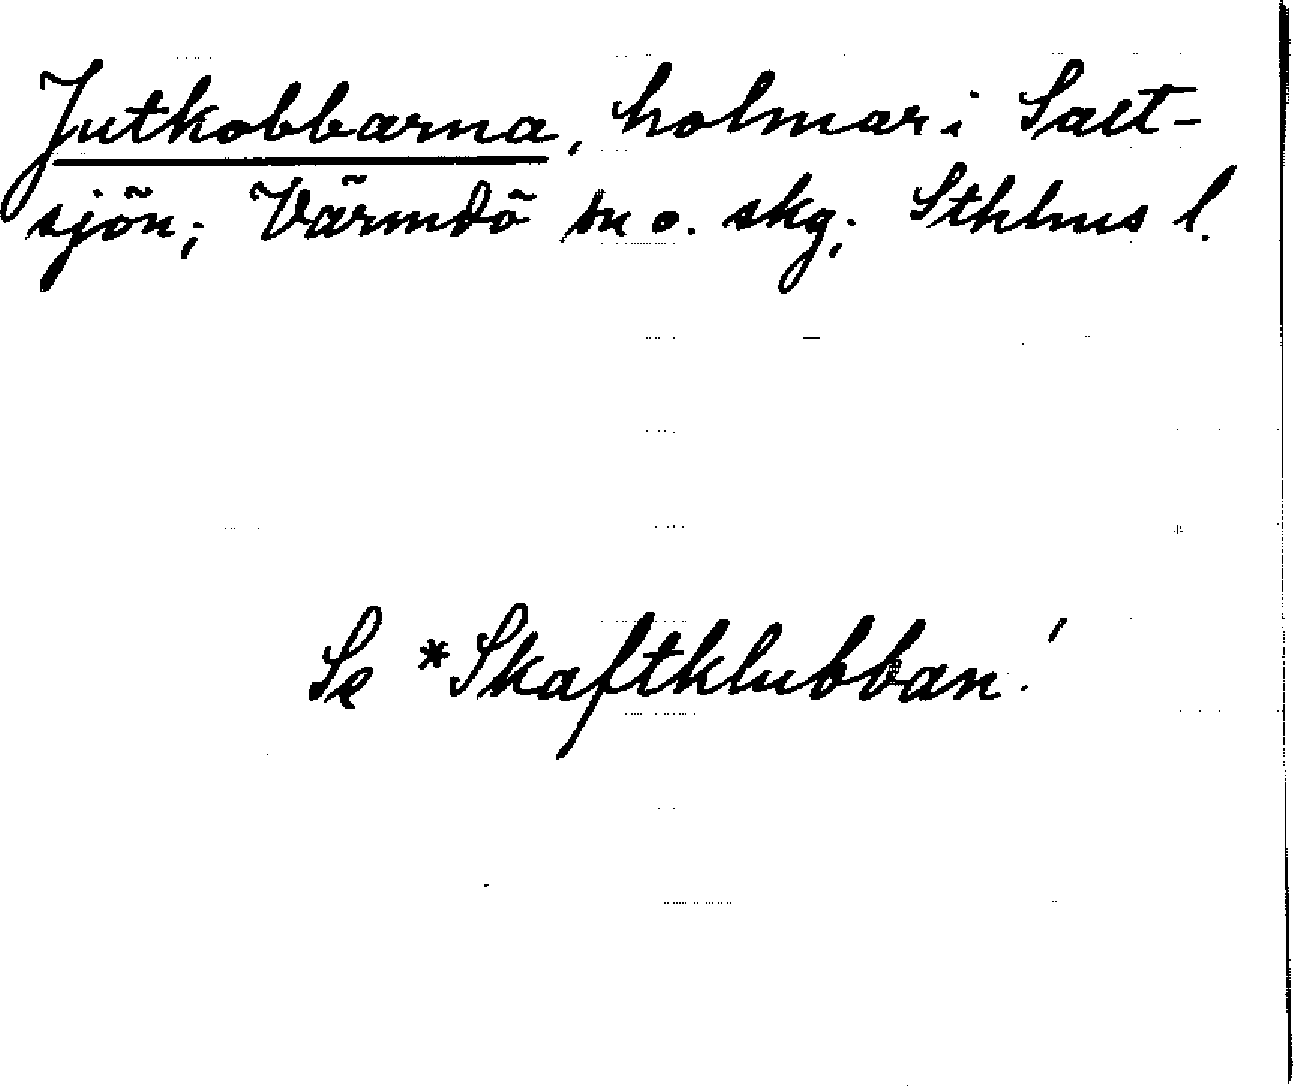 Jutkobbarna, holmar i Salt-
sjön; Värmdö sn o. skg; Sthlms l.
Se *Skaftklubban!